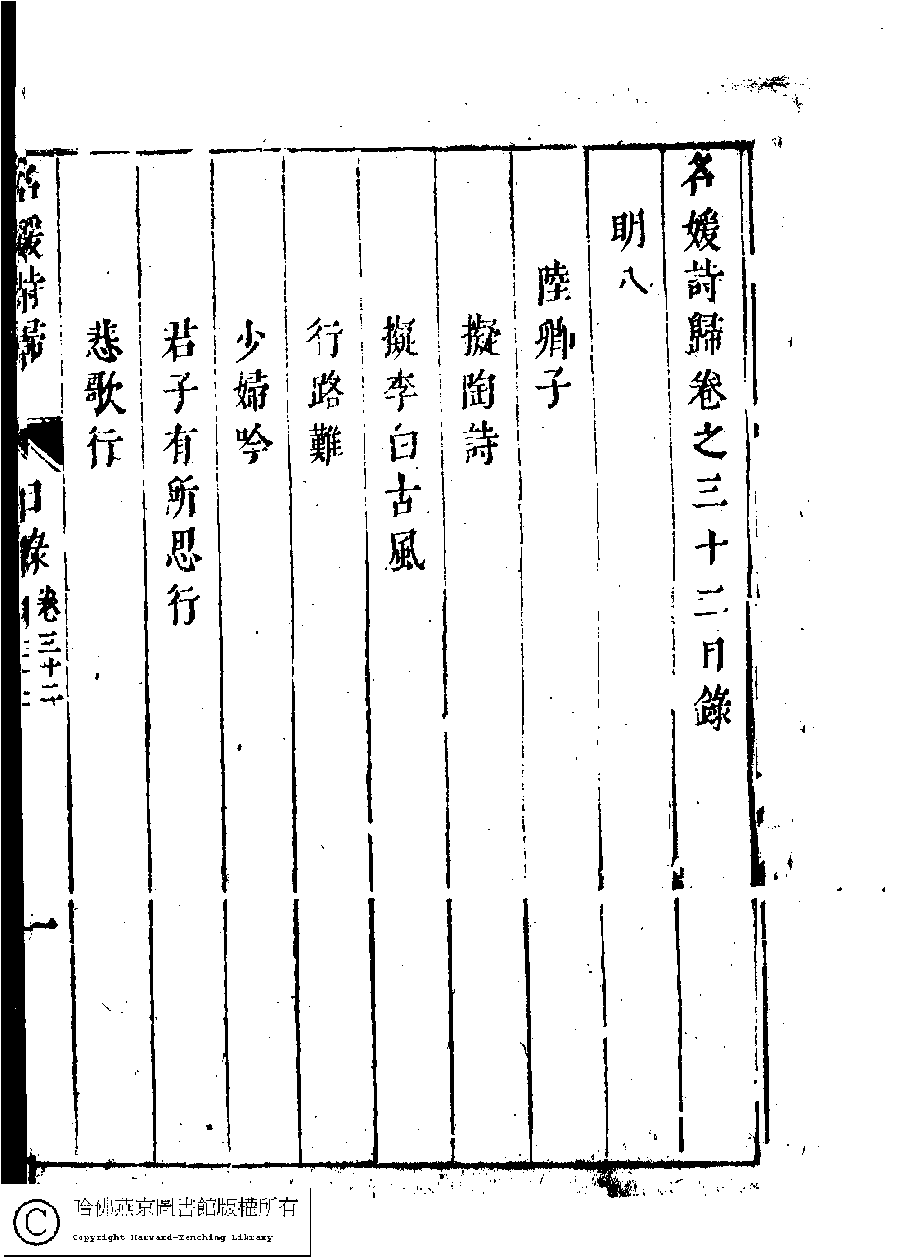 名媛詩歸卷之三十二目錄
明八
陸卿子
擬陶詩
擬李白古風
行路難
少婦吟
君子有所思行
悲歌行
名媛詩歸
目錄
卷三十二
一
哈佛燕京圖書館版權所有
Copyright Harvard-Yenching Library